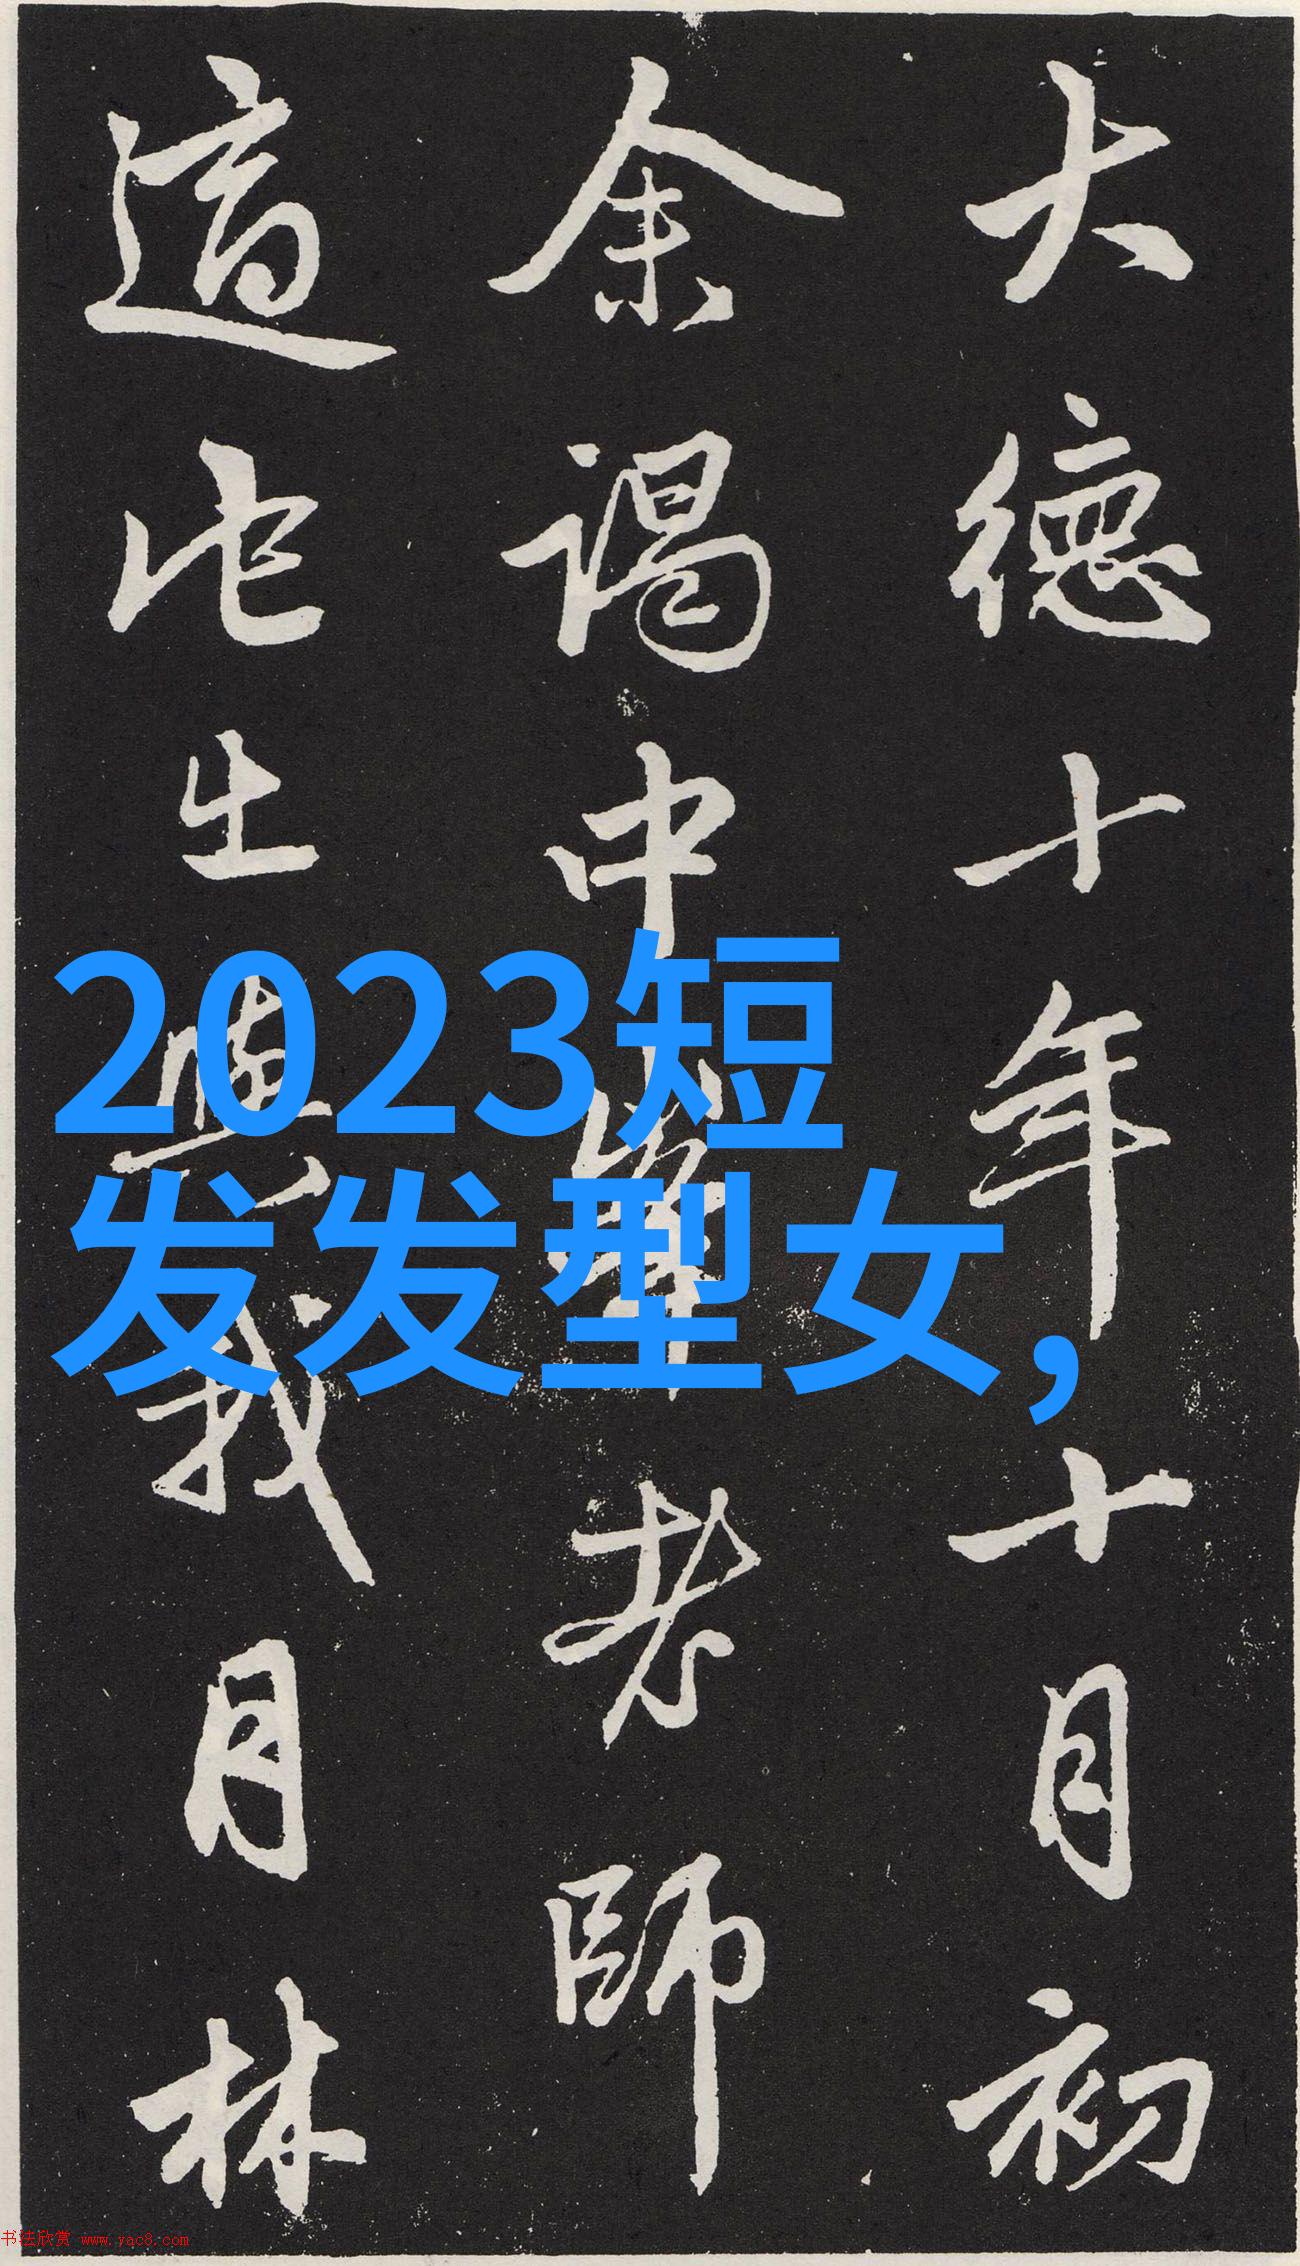 大德十年十月初
余謁中峯老師
適出與我月林
2023短
发发型女,
书法欣赏 www.yac8.com